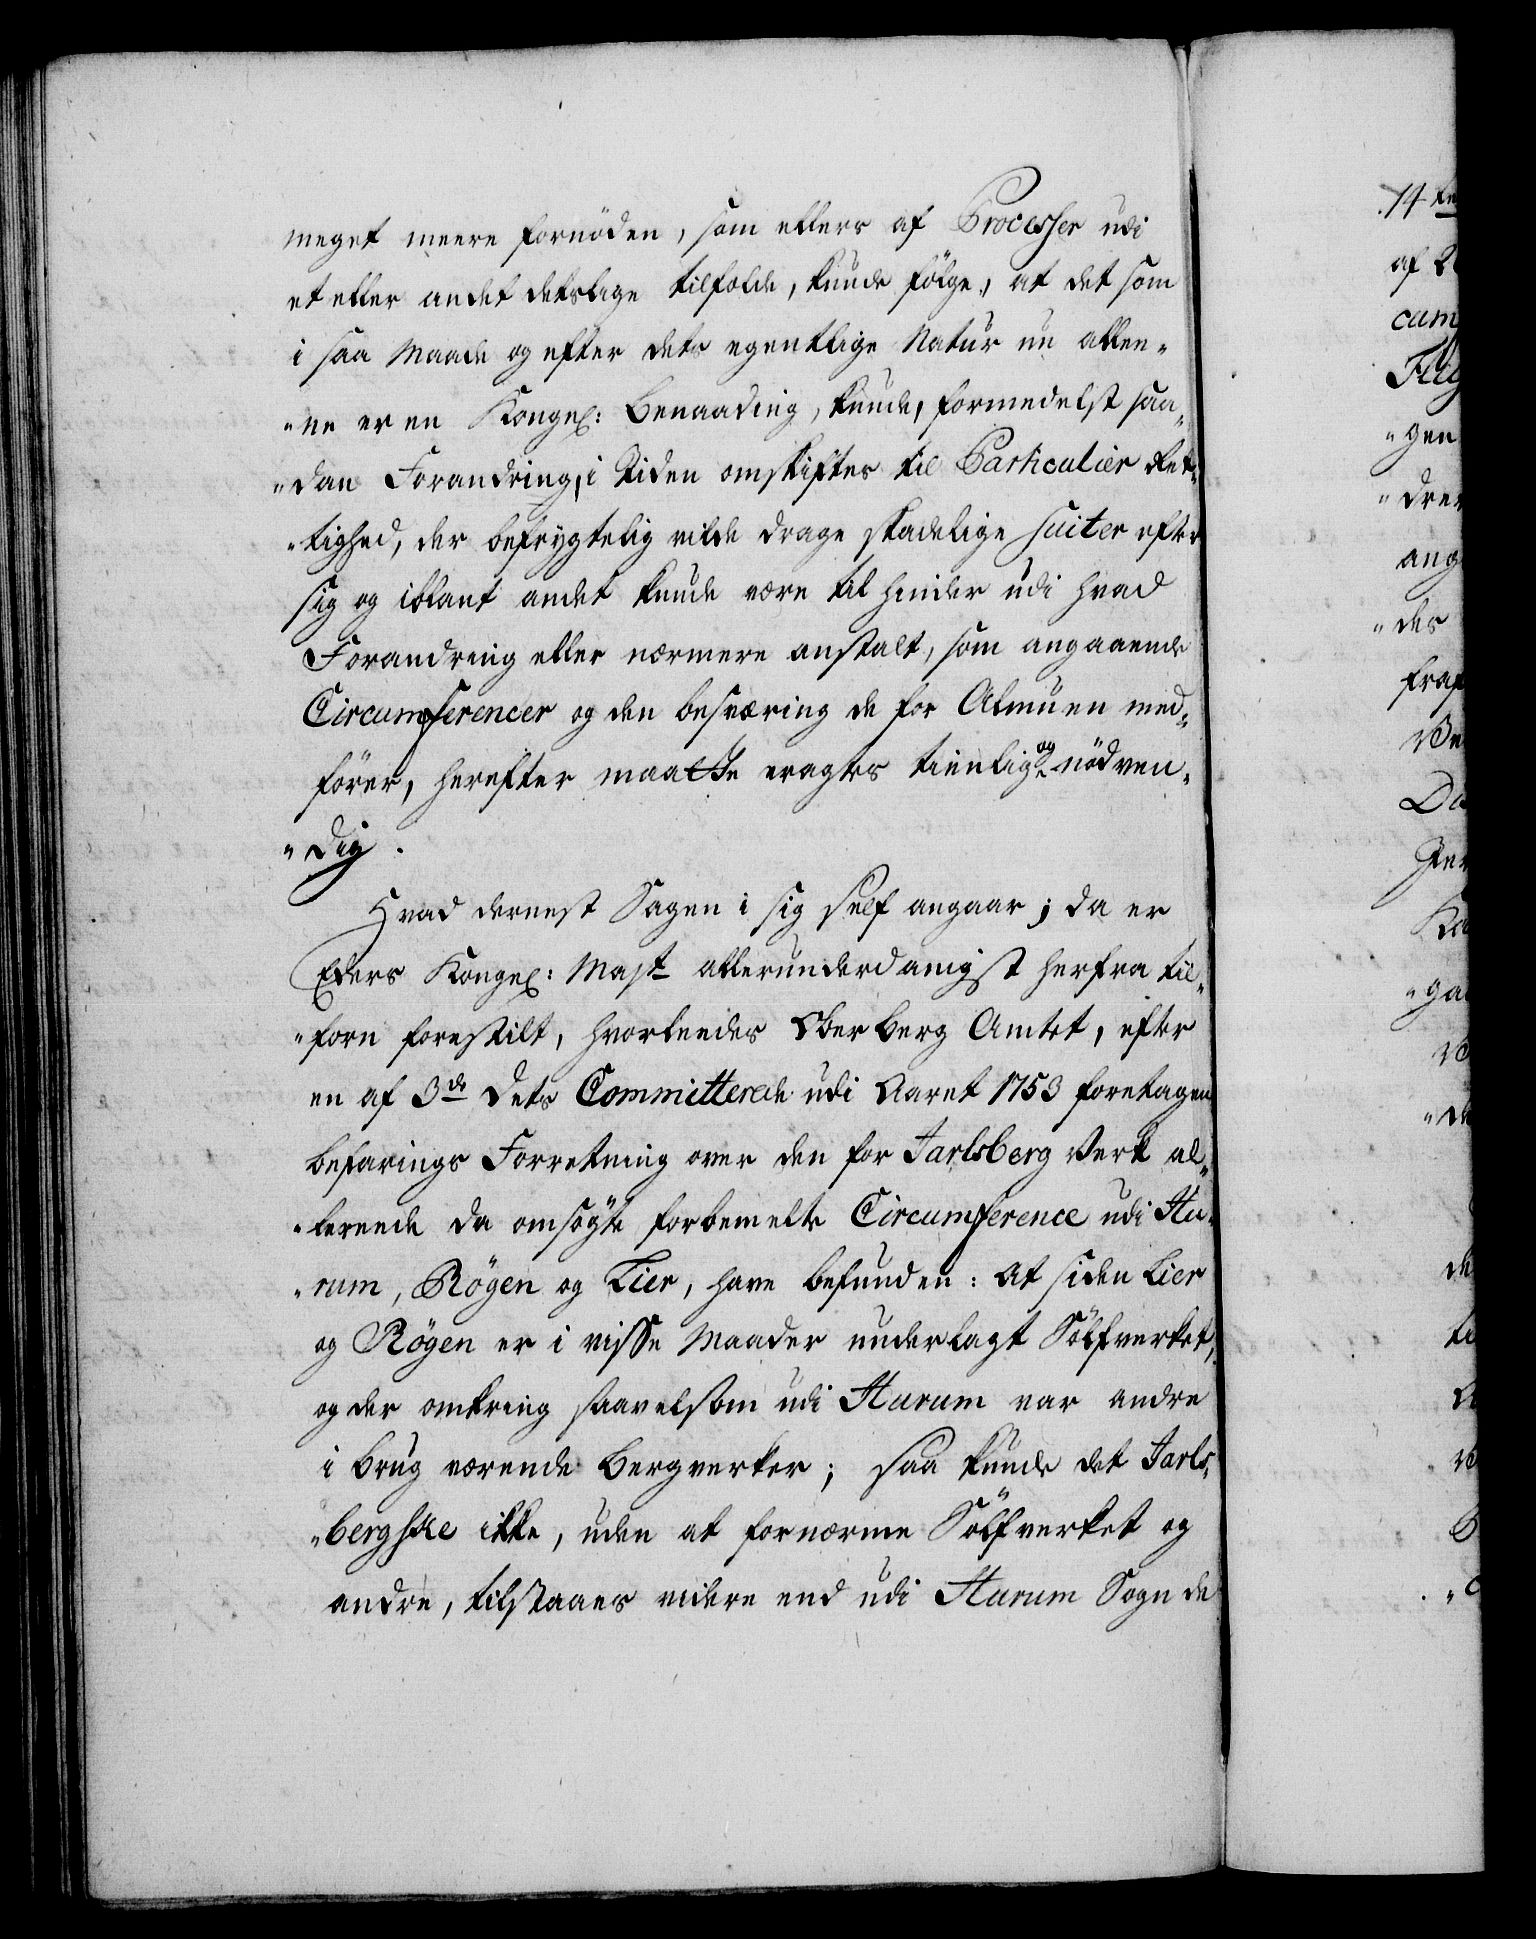 meget meere fornöden, som ellers af Processer udi
et eller andet detslige tilfælde, kunde fölge, at det som
i saa Maade og efter dets egentlige Natur nu allen„
„ne er en Kongel: Benaading, kunde, formedelst saa„
„dan Forandring, i Tiden omskiftes til Particulier Ret„
„tighed, der befrygtelig vilde drage skadelige suiter efter
sig og iblant andet kunde være til hinder udi hvad
Forandring eller nærmere anstalt, som angaaende
Circumferencer og den besværing de for Almuen med„
förer, herefter maatte eragtes tienlig og nödven„
„dig.
Hvad dernest Sagen i sig self angaar; da er
Eders Kongel: Mayt allerunderdanigst herfra til„
„forn forestilt, hvorledes Ober Berg Amtet, efter
en af 3de dets Committerede udi Aaret 1753 foretagen
befarings Forretning over den for Jarlsberg Verk al„
„lerede da omsøgte forbemelte Circumference udi Hu„
„rum, Røgen og Lier, have befunden: At siden Lier
og Røgen er i visse Maader underlagt Sölfverket,
og der omkring saavelsom udi Hurum var andre
i brug værende Bergverker; saa kunde det Jarls„
„bergske ikke, uden at fornærme Sölfverket og
andre, tilstaaes videre end udi Hurum Sogn de
14
af
cum
„gen
ang
„des